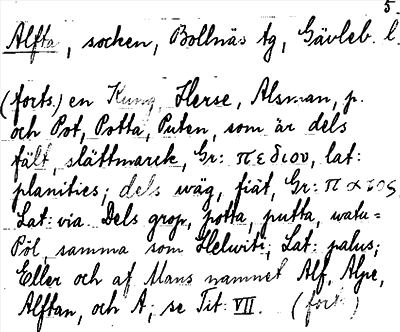 5.
Alfta, socken, Bollnäs tg, Gävleb. l.
(forts.) en Kung, Herse, Alsman, p.
och Pot, Potta, Puten, som är dels
fält, slättmarck, Gr: πεδιου, lat:
planities; dels wäg, fiät, Gr: πατος,
Lat: via. Dels grop, potta, putta, watu=
Pöl, samma som Helwiti; Lat: palus;
Eller och af Mans namnet Alf, Alpe,
Alftan, och A; se Tit: VII. (fort.)